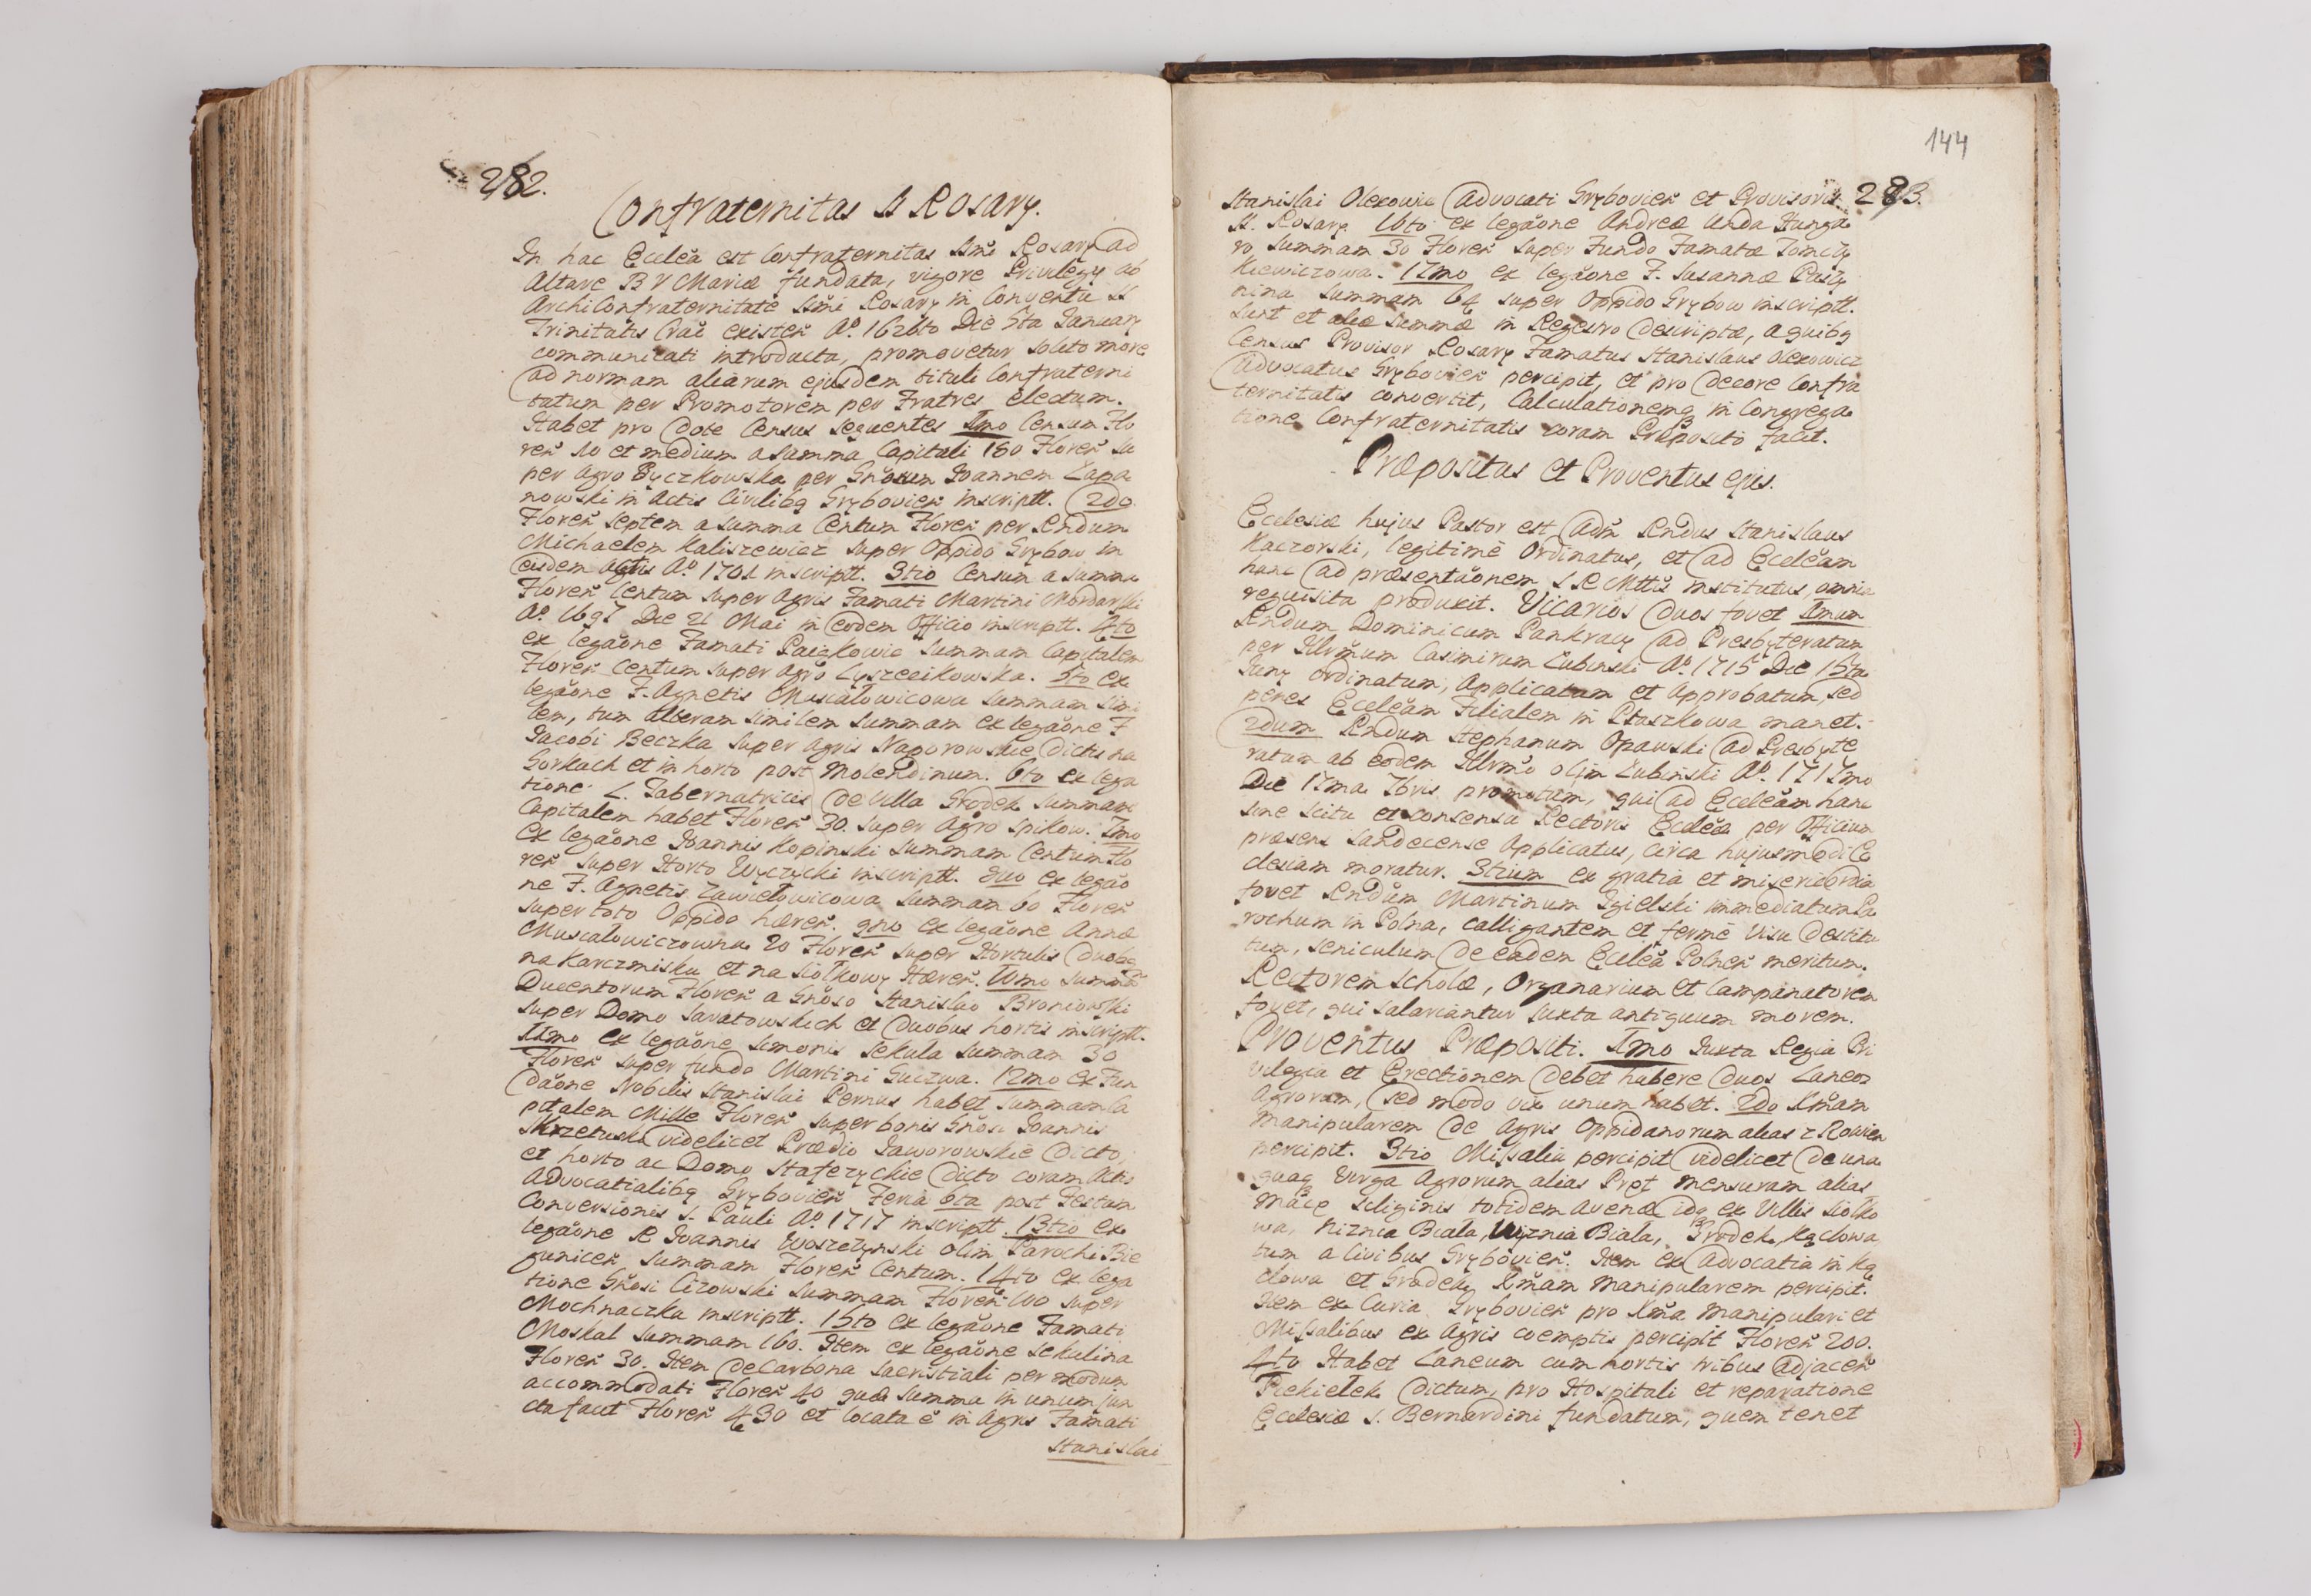 282.
Confraternitas SS Rosarÿ.
In hac Eccleã est Confraternitas SSmi Rosarÿ ad
Altare B V Mariæ fundata, vigore Privilegÿ ab
Archiconfraternitate SSmi Rosarÿ in Conventu SS
Trinitatis Crac̄ existen̄ Aº 1626to Die 5ta Januarÿ
communicati introducta, promovetur solito more
ad normam aliarum ejusdem tituli Confraterni
tatum per Promotorem per Fratres electum.
Habet pro dote Census sequentes Imo Censum Flo
ren̄ 10 et medium a Summa Capitali 150 Floren̄ su
per Agro Byczkowska per Gnõsum Joannem Lapa
nowski in Actis Civilibq Grybovien̄ inscriptt. 2do
Floren̄ septem a summa Centum Floren̄ per Rndum
Michaelem Kaliszewicz super Oppido Grybow in
eisdem actis Aº 1701 inscriptt. 3tio Censum a summa
Floren̄ Centum super Agris Famati Martini Mordarski
Aº 1697 Die 21 Mai in eodem Officio inscriptt. 4to
ex legãone Famati Paszkowic Summam Capitalem
Floren̄ Centum super Agro Lyszczikowska. 5to ex
legãone F. Agnetis Muscalowicowa Summam simi
lem, tum alteram similem summam ex legãone F
Jacobi Beczka super agris Naporowskie dictis na
Gorkach et in horto post Molendinum. 6to ex lega
tione L. Tabernatricis de Villa Grodek summam
Capitalem habet Floren̄ 30. super Agro Spikow. 7mo
Ex legãone Joannis Kopinski Summam Centum Flo
ren̄ super Horto Wyczycki inscriptt. 8vo ex legão
ne F. Agnetis Zawietowicowa Summam 60 Floren̄
super toto Oppido hæren̄. 9no ex legãone Annæ
Muscalowiczowna 20 Floren̄ super Hortulis duobq
na Karczmisku et na Siołkowy Hæren̄. 10mo Summa
Ducentorum Floren̄ a Gnõso Stanislao Broniowski
super Domo Saratowskich et duobus hortis inscriptt.
11mo ex legãone Simonis Sekula summam 30
Floren̄ super fundo Martini Guczwa. 12mo ex Fun
dãone Nobilis Stanislai Pernus habet summam Ca
pitalem Mille Floren̄ super bonis Gnõsi Joannis
Skrzetuski videlicet Prædio Jaworowskie dicto,
et horto ac Domo Stafezyckie dicto coram Actis
Advocatialibq Grybovien̄ Feria 6ta post Festum
Conversionis S. Pauli Aº 1717 inscriptt. 13tio ex
legãone R Joannis Woszczynski olim Parochi Bie
gunicen̄ summam Floren̄ Centum. 14to ex lega
tione Gnõsi Cizowski summam Floren̄ 100 super
Mochnaczka inscriptt. 15to ex legãone Famati
Moskal summam 160. Item ex legãone Sekulina
Floren̄ 30. Item de Carbona Sacristiali per modum
accommodati Floren̄ 40 quæ summa in unum jun
cta facit Floren̄ 430 et locata ē in Agris Famati
Stanislai
144
283.
Stanislai Olexowic Advocati Grybovien̄ et Provisoris
SS. Rosarÿ. 16to ex legãone Andreæ Unda Hunga
ro Summam 30 Floren̄ super Fundo Famatæ Tomczy
kiewiczowa. 17mo ex legãone F. Susannæ Paszy
nina Summam 64 super Oppido Grybow inscriptt.
Sunt et aliæ summæ in Regestro descriptæ, a quibq
Census Provisor Rosarÿ Famatus Stanislaus Olexowicz
Advocatus Grybovien̄ percipit, et pro decore Confra
ternitatis convertit, Calculationemq in Congrega
tione Confraternitatis coram Præposito facit.
Præpositus et Proventus ejus.
Ecclesiæ hujus Pastor est Adm̃ Rndus Stanislaus
Kaczorski, legitimè Ordinatus, et ad Eccleãm
hanc ad præsentãonem S R Mttis institutus, omnia
requisita produxit. Vicarios duos fovet Imum
Rndum Dominicum Pankracÿ ad Presbyteratum
per Illrmum Casimirum Lubinski Aº 1715 Die 15ta
Junÿ ordinatum, Applicatum et Approbatum, sed
penes Eccleãm Filialem in Ptaszkowa manet.
2dum Rndum Stephanum Opawski ad Presbyte
ratum ab eodem Illrmo olim Lubinski Aº 1717mo
Die 17ma 7bris promotum, qui ad Eccleãm hanc
sine scitu et consensu Rectoris Eccleæ per Officium
præsens Sandecense Applicatus, circa hujusmodi Ec
clesiam moratur. 3tium ex gratia et misericordia
fovet Rndum Martinum Igielski immediatum Pa
rochum in Polna, calligantem et fermè visu destitu
tum, seniculum de eadem Eccleã Polnen̄ meritum.
Rectorem Scholæ, Organarium et Campanatorem
fovet, qui salariantur juxta antiquum morem.
Proventus Præpositi. Imo Juxta Regia Pri
vilegia et Erectionem debet habere duos Laneos
Agrorum, sed modo vix unum habet. 2do Xmãm
Manipularem de Agris Oppidanorum alias z Rowien
percipit. 3tio Missalia percipit videlicet de una
quaq Virga Agrorum alias Pręt mensuram alias
Macę siliginis totidem avenæ idq ex Villis Siołko
wa, Niznia Biala, Wyznia Biala, Grodek, Kąclowa
tum a Civibus Grybovien̄. Item ex Advocatia in Ką
clowa et Grodek Xmãm manipularem percipit.
Item ex Curia Grybovien̄ pro Xmã manipulari et
Missalibus ex Agris coemptis percipit Floren̄ 200.
4to Habet Laneum cum hortis tribus adjacen̄
Piekiełek dictum, pro Hospitali et reparatione
Ecclesiæ S. Bernardini fundatum, quem tenet